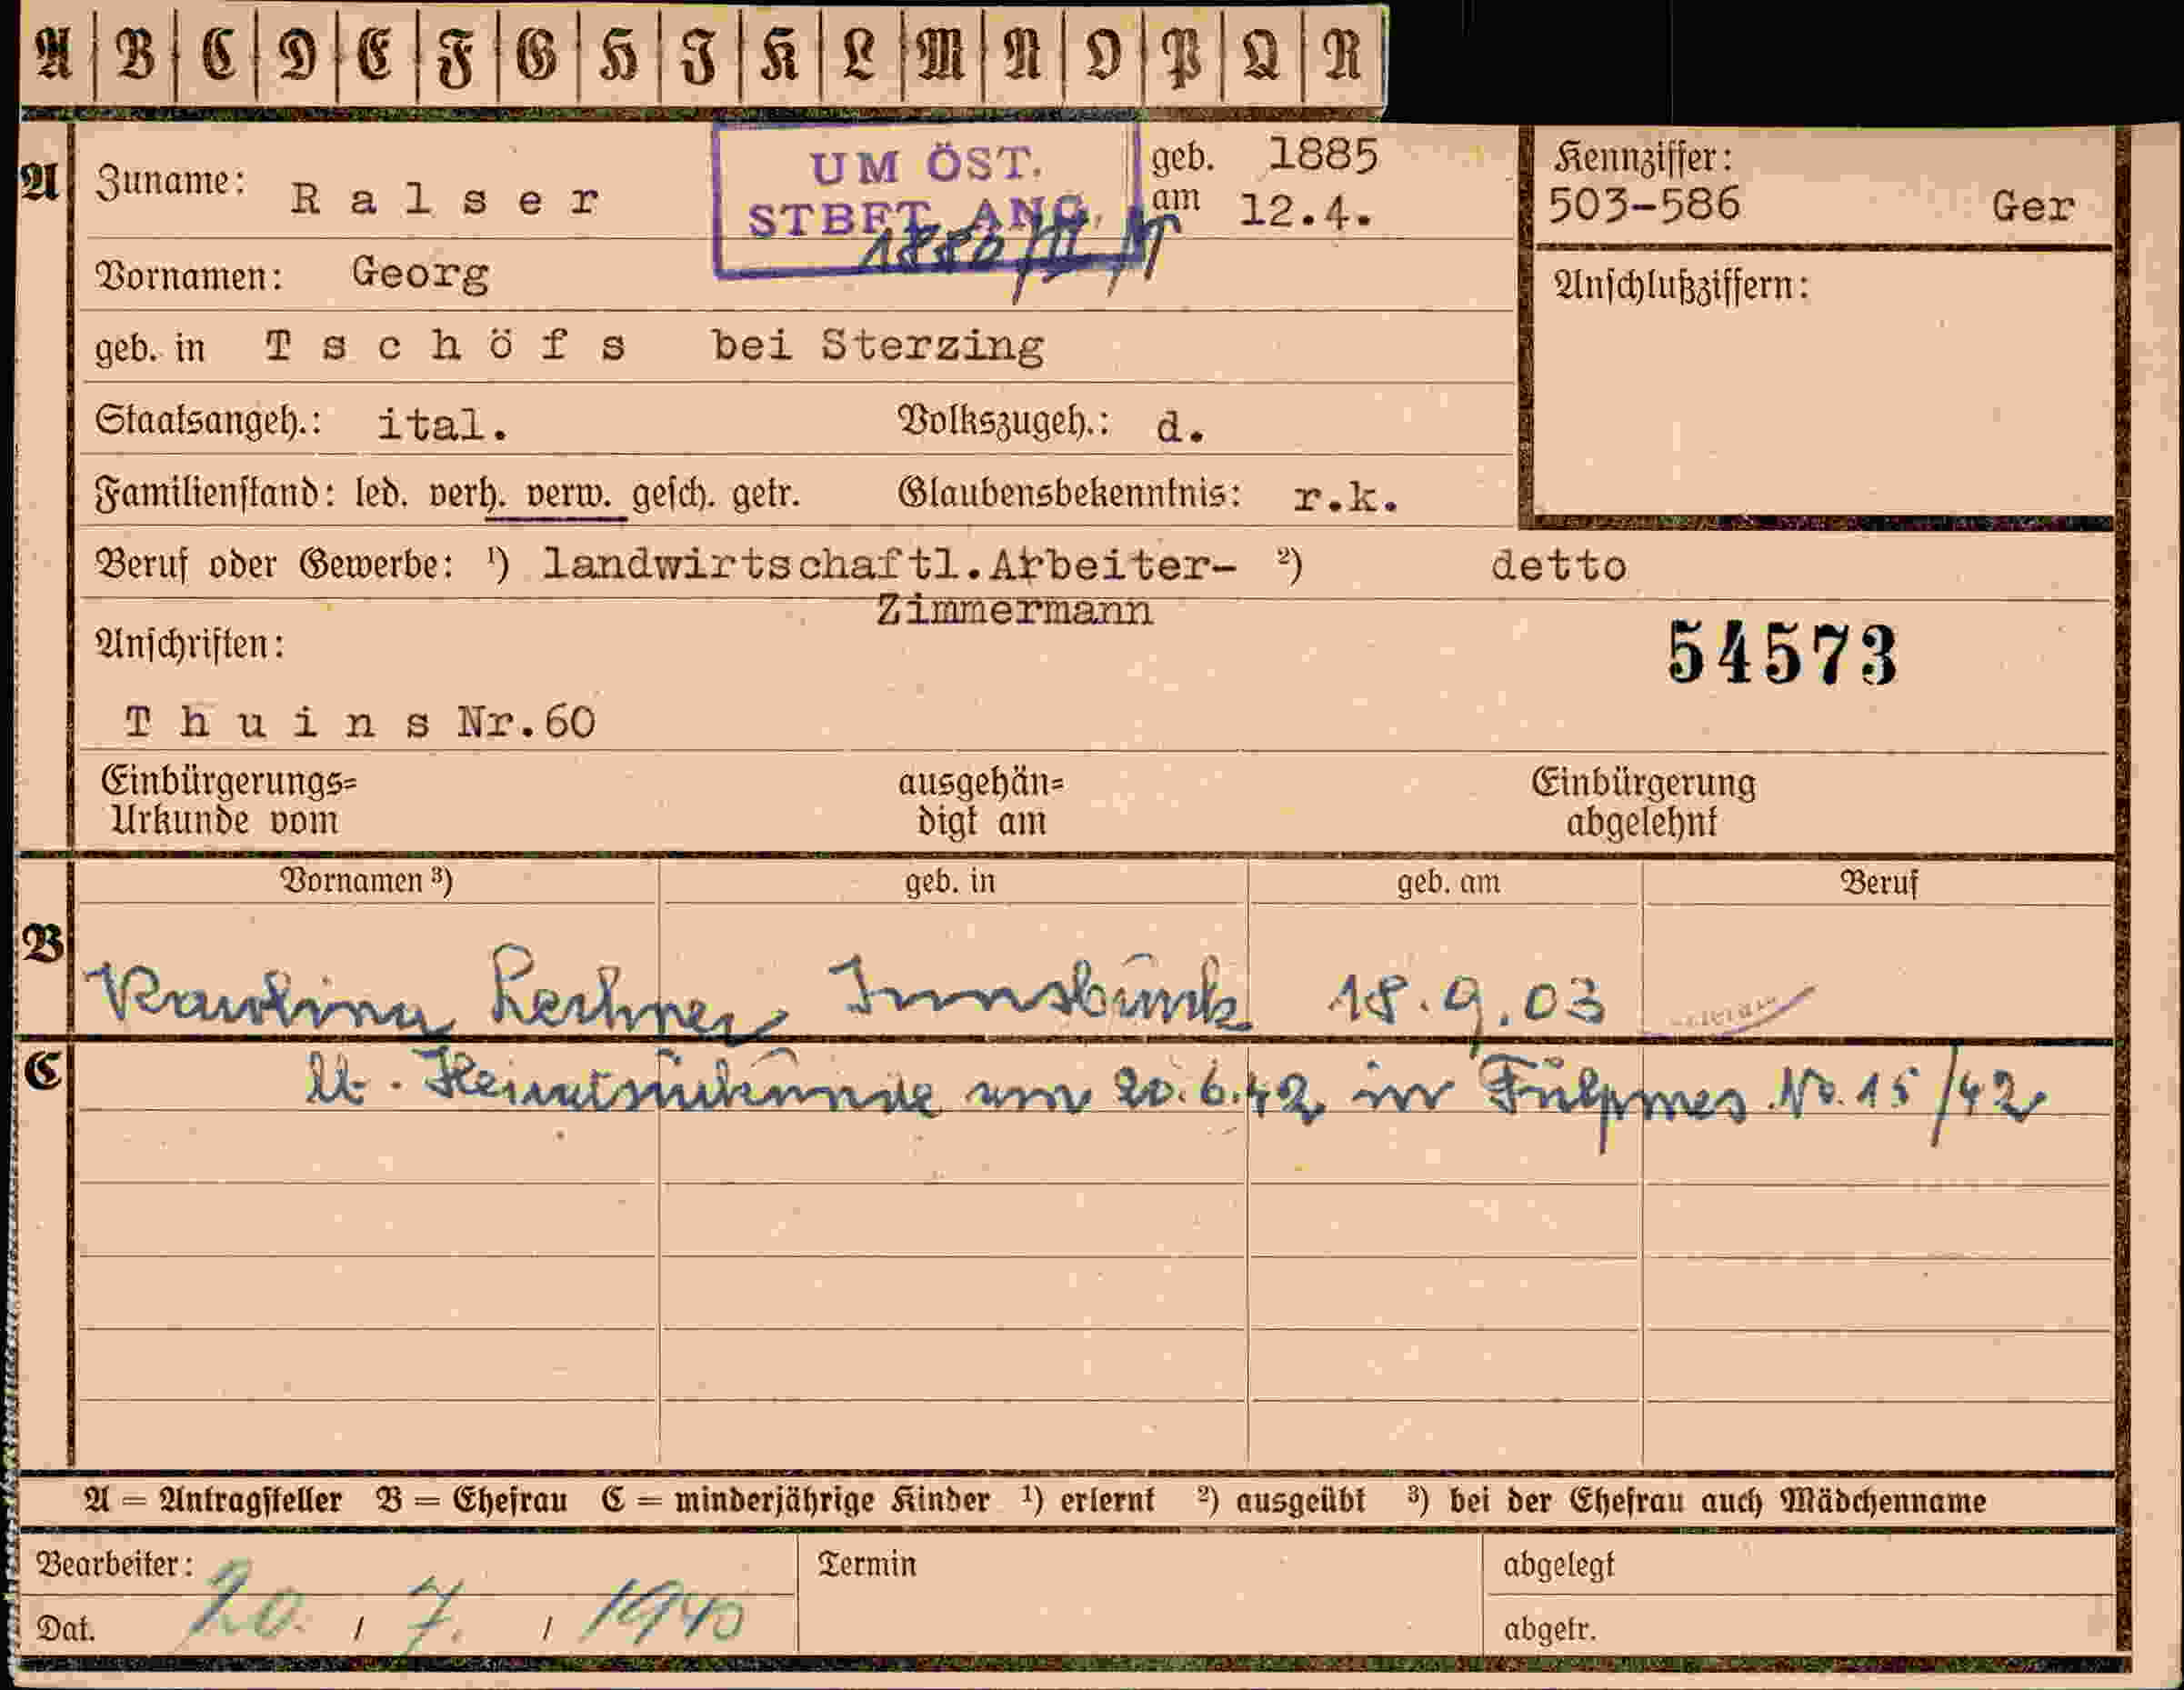 A B C D E F G H I K L M N O P Q R
A Zuname: Ralser
UM ÖST.
STBFT. ANG.
geb. 1885
am 12.4.
Kennziffer:
503-586 Ger
Vornamen: Georg
Anschlußziffern:
geb. in Tschöfs bei Sterzing
Staatsangeh.: ital. Volkszugeh.: d.
Familienstand: led. verh. verw. gesch. getr. Glaubensbekenntnis: r.k.
Beruf oder Gewerbe: ¹) landwirtschaftl.Arbeiter- ²) detto
Zimmermann
Anschriften:
54573
Thuins Nr.60
Einbürgerungs= ausgehän= Einbürgerung
Urkunde vom digt am abgelehnt
Vornamen ³) geb. in geb. am Beruf
B Karolina Lechner Innsbruck 18.9.03
C lt. Heiratsurkunde vom 20.6.42 in Fulpmes No. 15/42
A = Antragsteller B = Ehefrau C = minderjährige Kinder ¹) erlernt ²) ausgeübt ³) bei der Ehefrau auch Mädchenname
Bearbeiter: Termin abgelegt
Dat. 20. / 7. / 1940 abgetr.